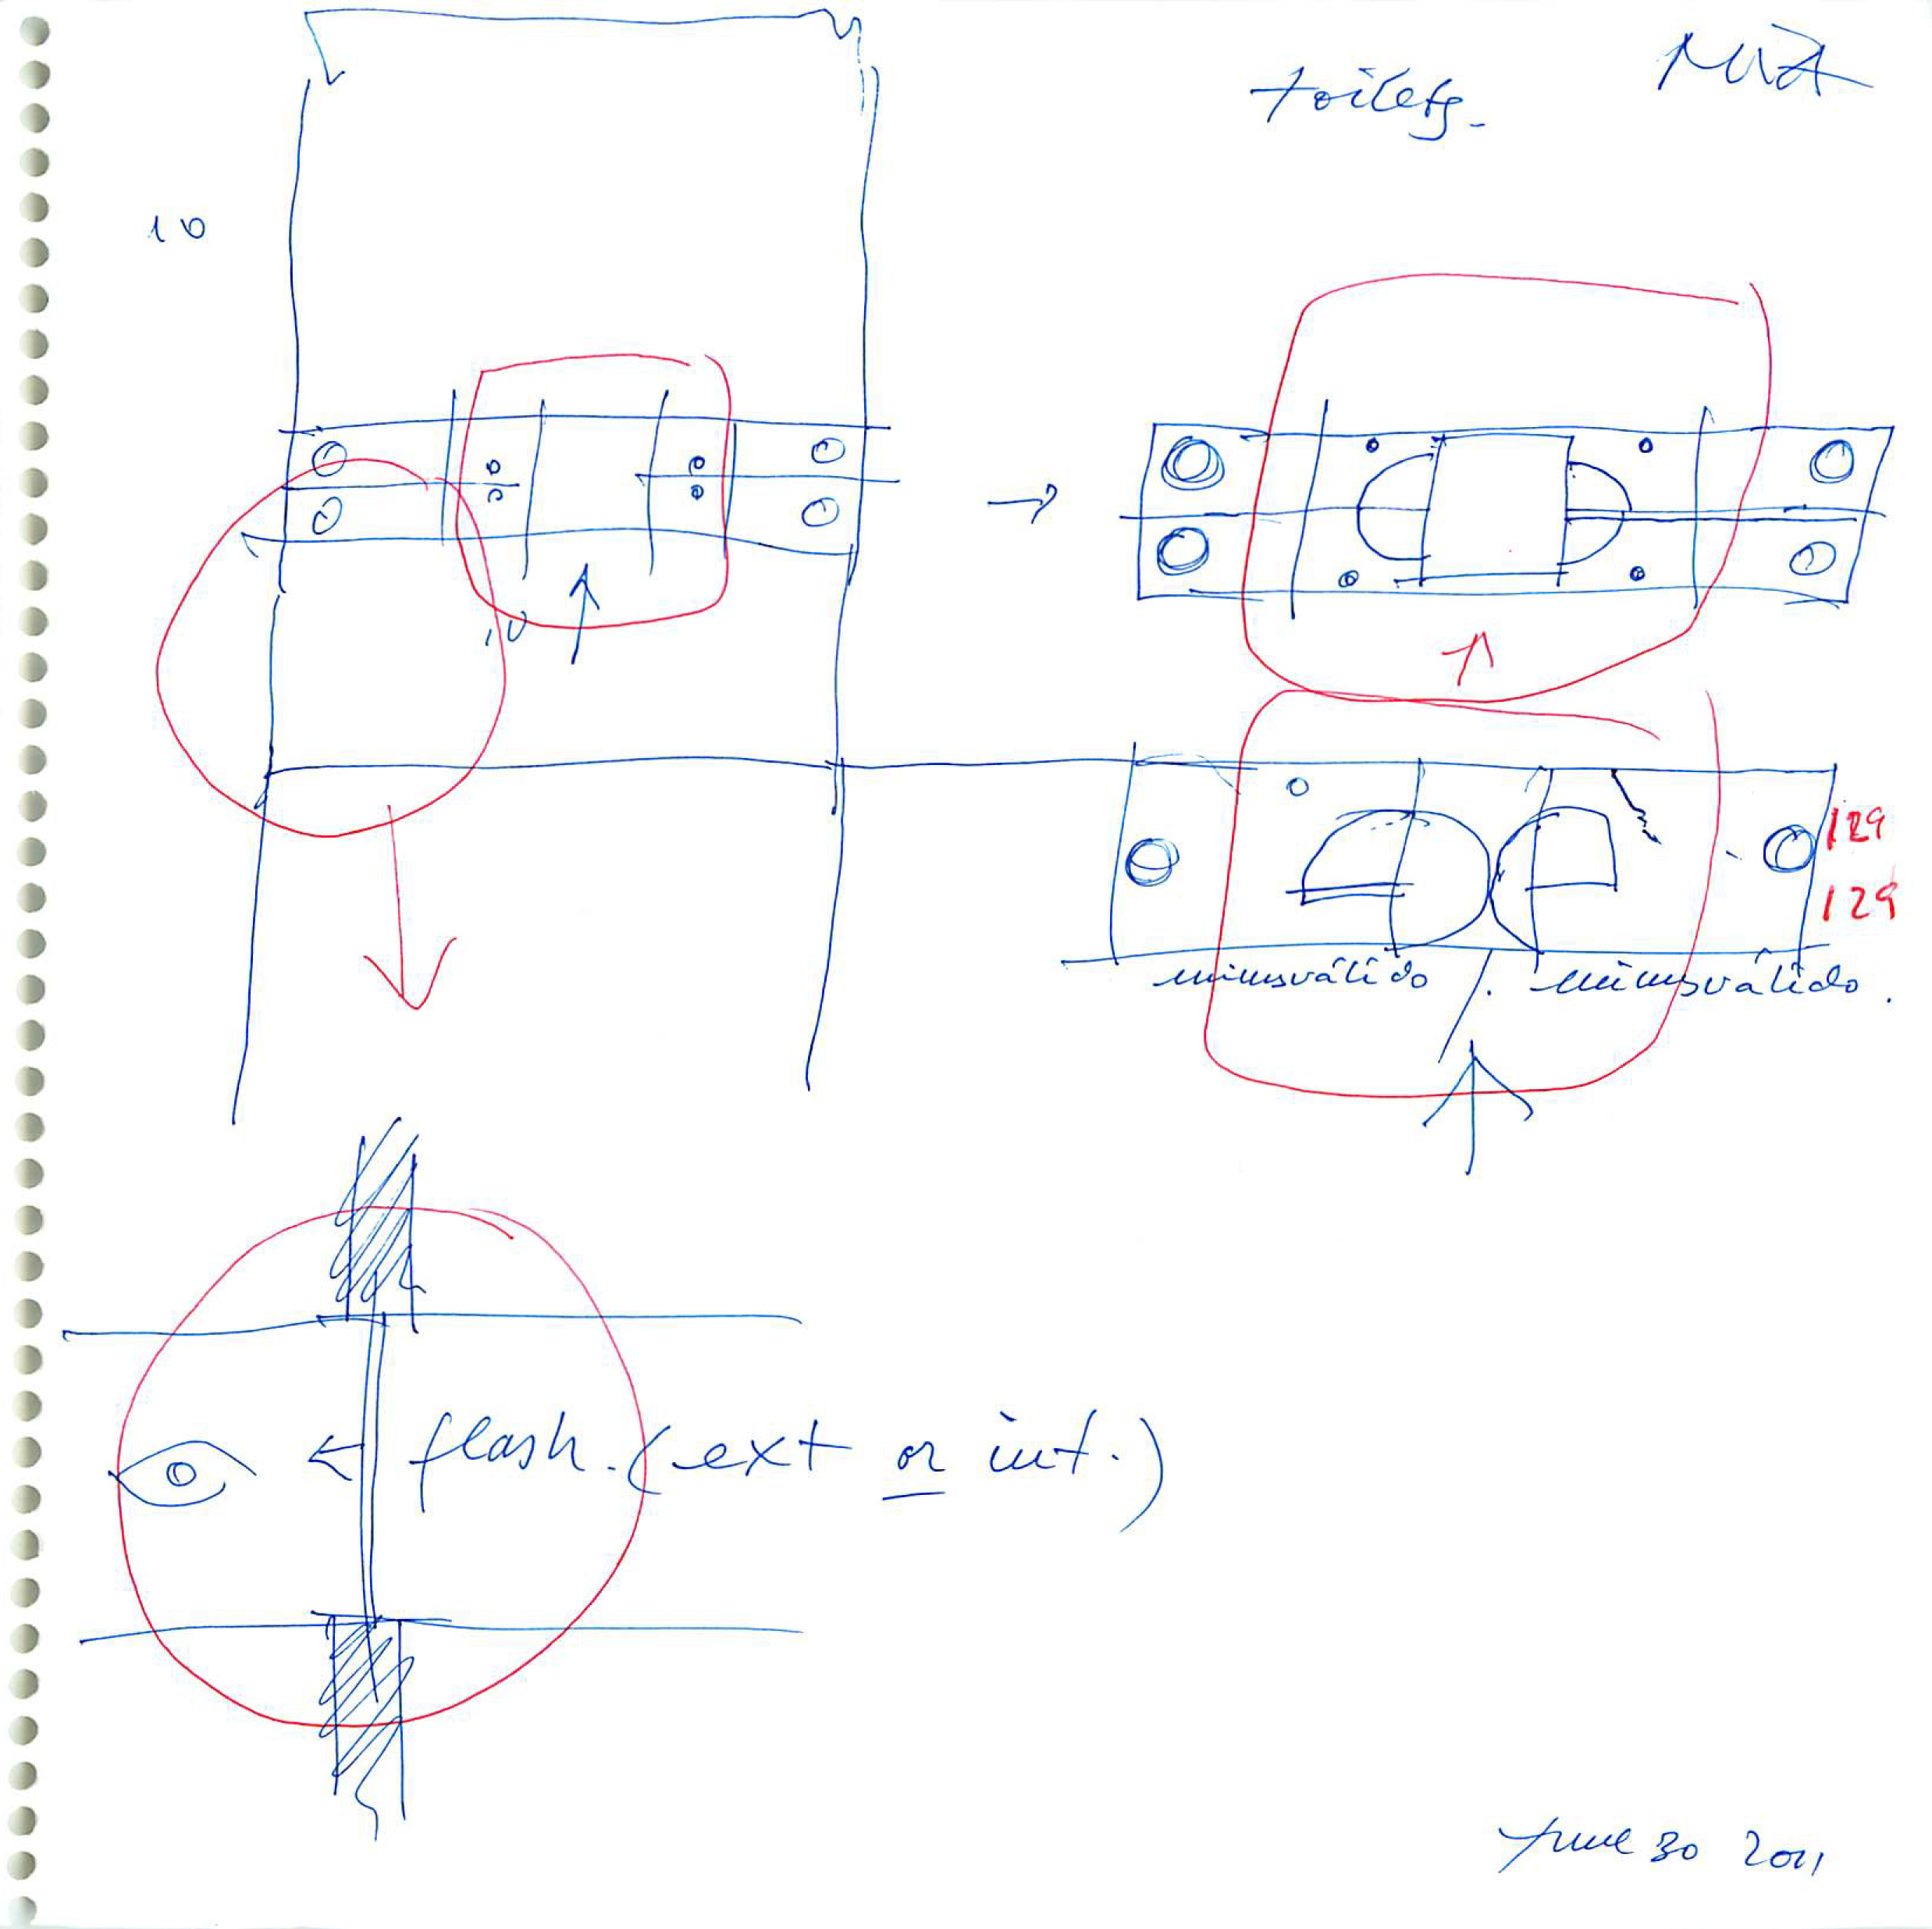 toilets.
10
10
129
129
minusválido / . minusválido .
flash. (ext or int.)
June 30 2011